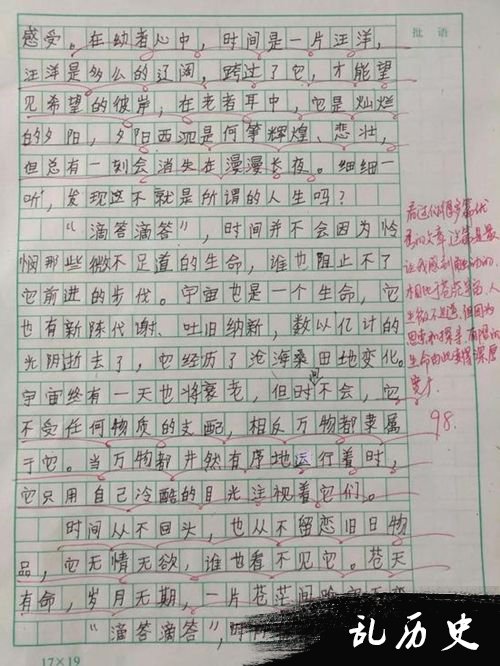 批语
感受。在幼者心中，时间是一片汪洋，
汪洋是多么的辽阔，跨过了它，才能望
见希望的彼岸，在老者耳中，它是灿烂
的夕阳，夕阳西沉是何等辉煌、悲壮，
但总有一刻会消失在漫漫长夜。细细一
听，发现这不就是所谓的人生吗？
“滴答滴答”，时间并不会因为怜
悯那些微不足道的生命，谁也阻止不了
它前进的步伐。宇宙也是一个生命，它
也有新陈代谢、吐旧纳新，数以亿计的
光阴逝去了，它经历了沧海桑田地变化。
宇宙终有一天也将衰老，但时间不会，它
不受任何物质的支配，相反万物都隶属
于它。当万物都井然有序地运行着时，
它只用自己冷酷的目光注视着它们。
时间从不回头，也从不留恋旧日物
品，它无情无欲，谁也看不见它。苍天
有命，岁月无期，一片苍茫间
“滴答滴答”，时
看过你很多篇优
秀的文章，这篇是最
让我感到触动的，
人
生微不足道，但因为
思索和探寻，有限的
生命由此变得深厚
98.
17×19
乱历史